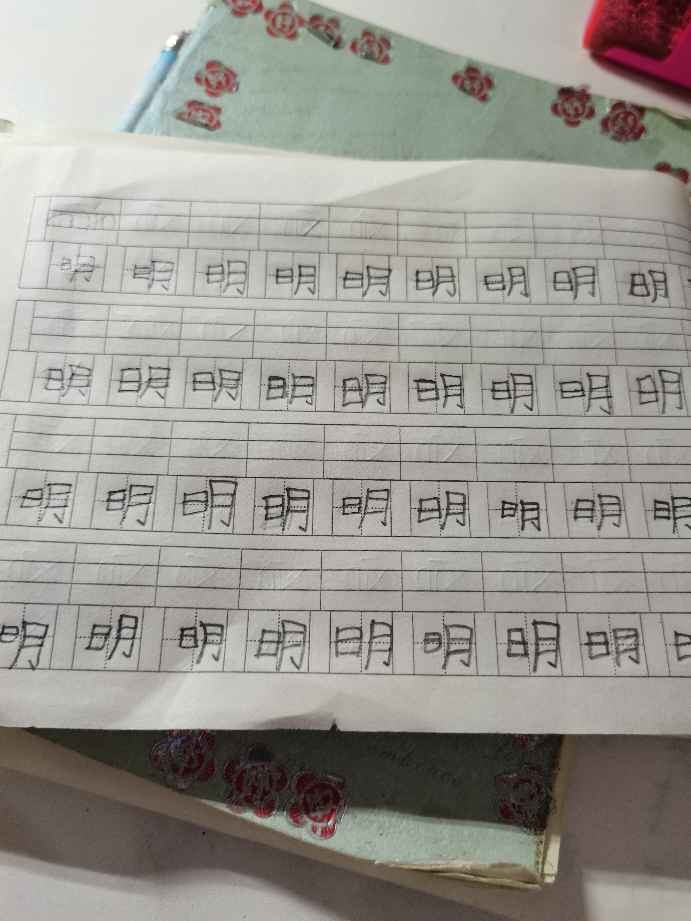 明 明 明 明 明 明 明 明 明
明 明 明 明 明 明 明 明 明
明 明 明 明 明 明 明 明 明
明 明 明 明 明 明 明 明